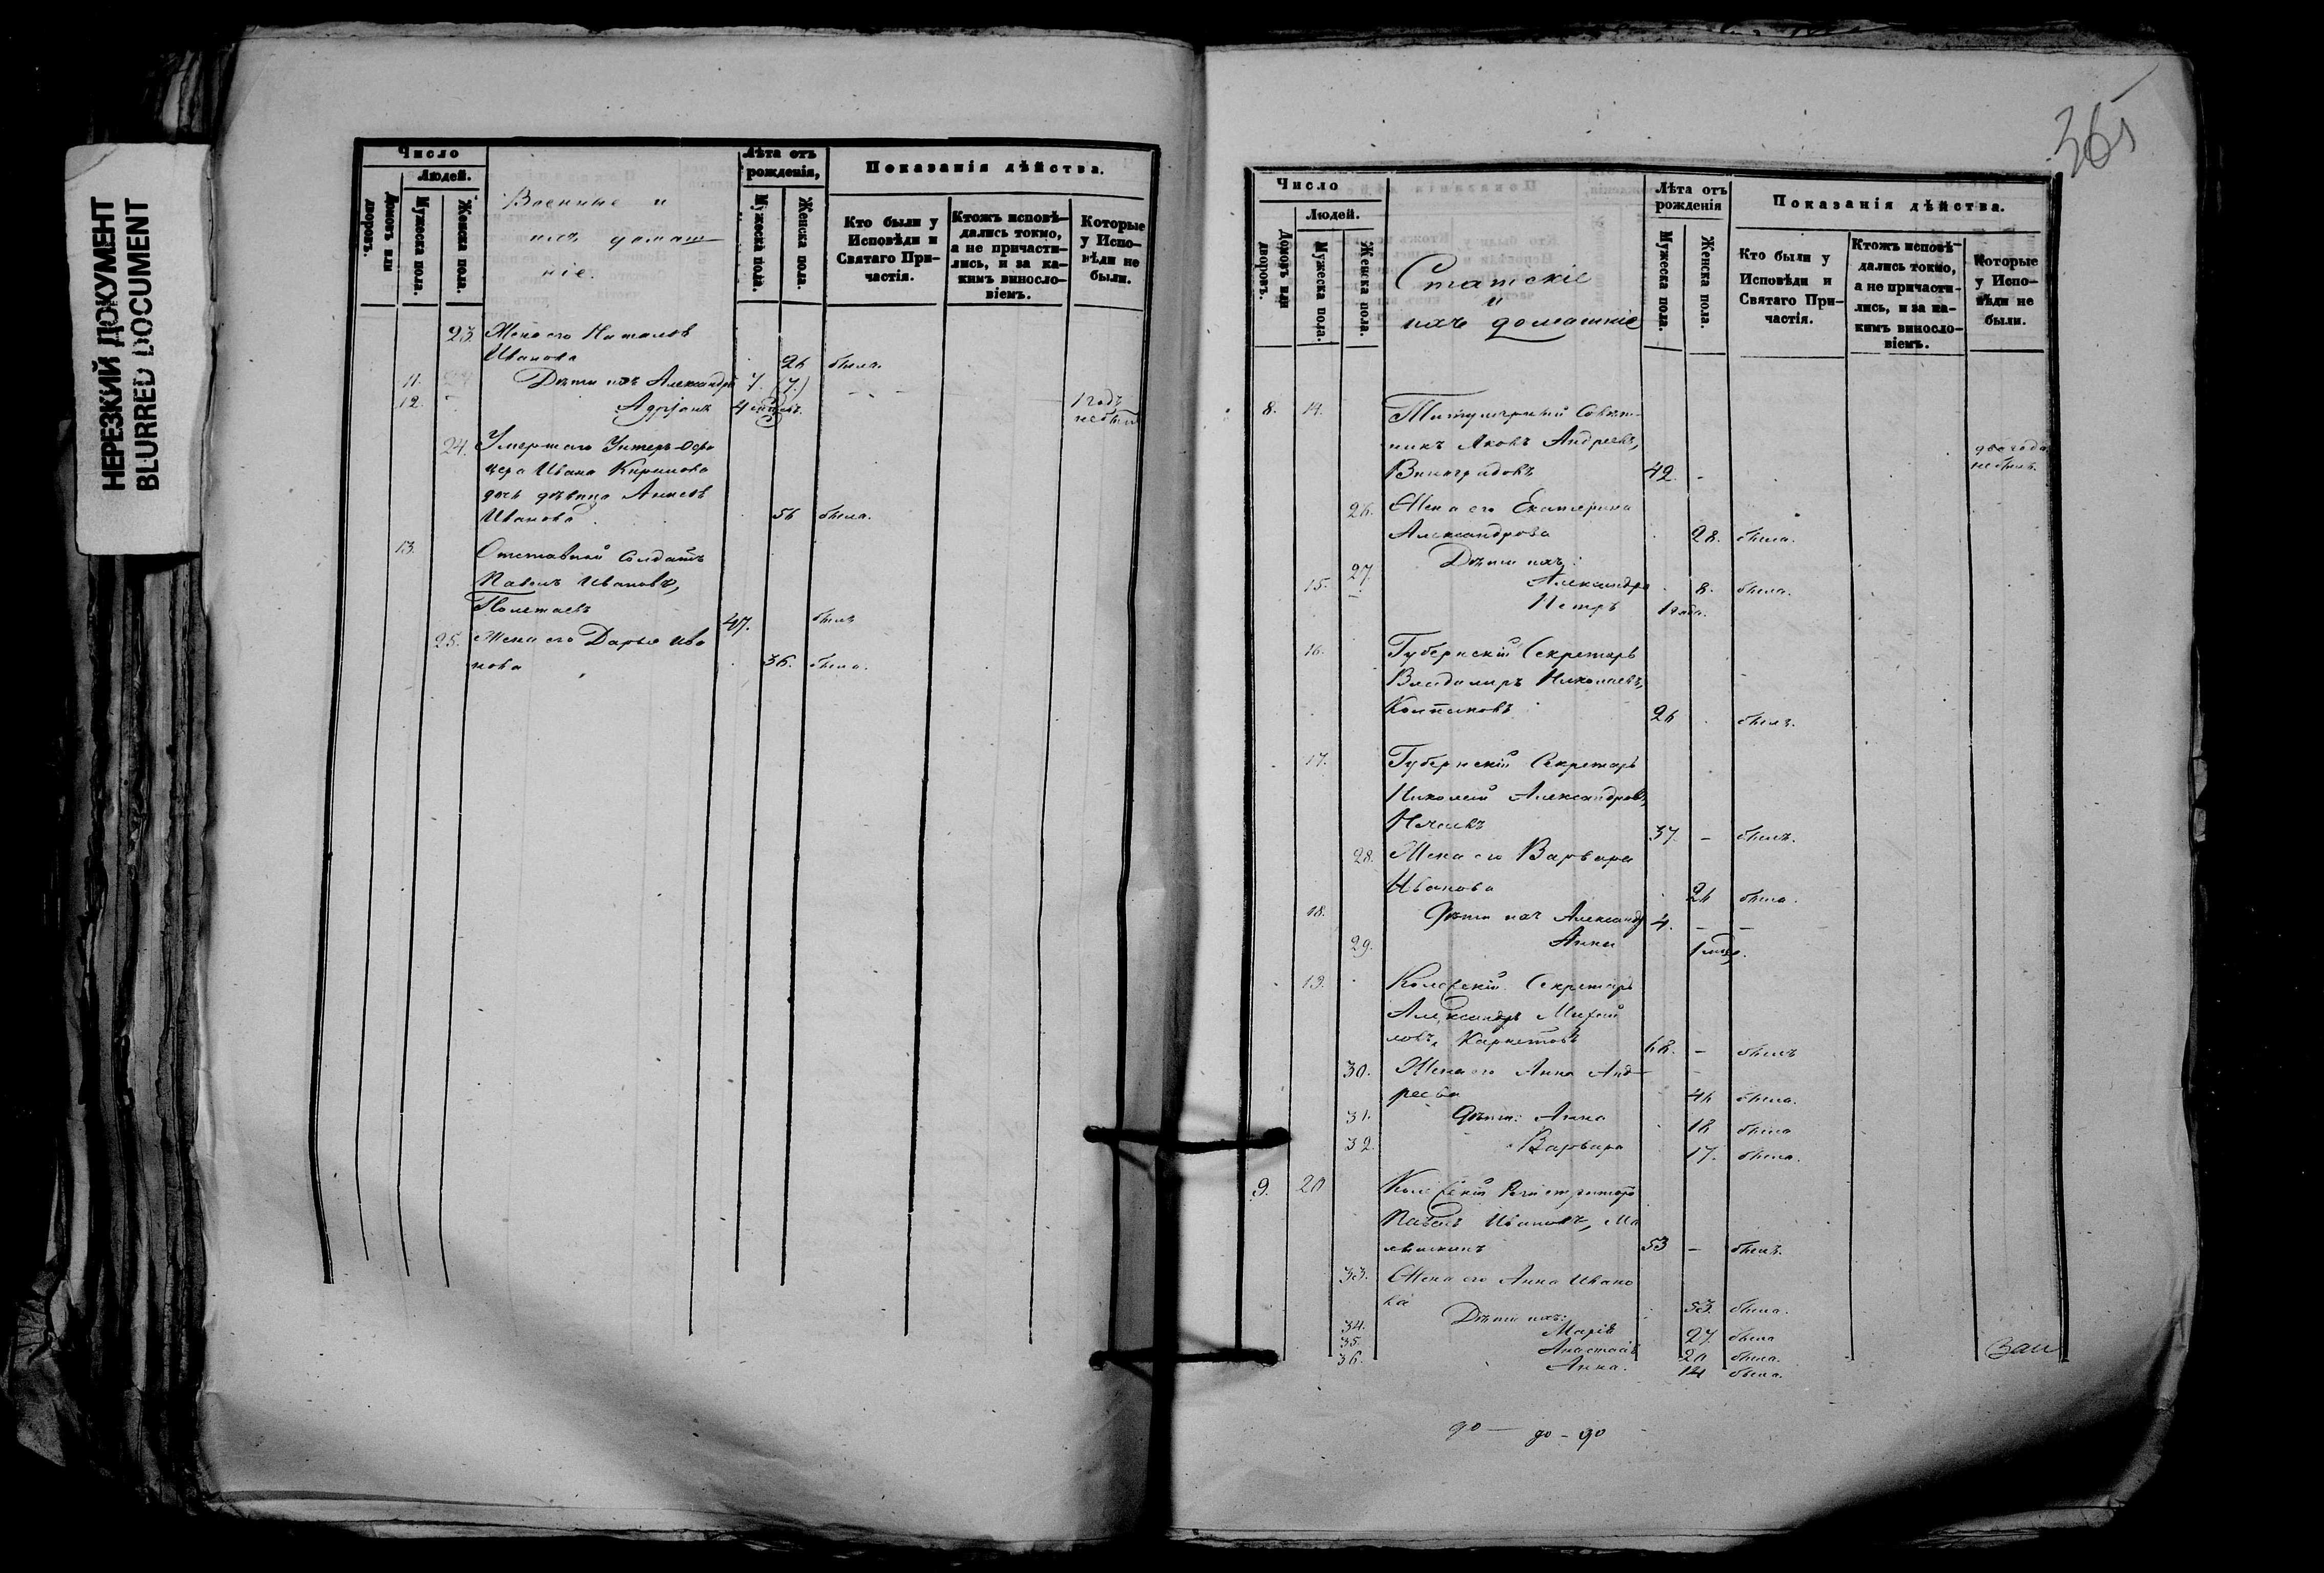 НЕРЕЗКИЙ ДОКУМЕНТ
BLURRED DOCUMENT
Число
Людей.
Домовъ или дворовъ.
Мужеска пола.
Женска пола.
Военные и
ихъ домаш
ніе.
Лѣта отъ рожденія,
Мужеска пола.
Женска пола.
Показанія дѣйства.
Кто были у Исповѣди и Святаго Причастія.
Ктожъ исповѣдались токмо, а не причастились, и за какимъ винословіемъ.
Которые у Исповѣди не были.
23. Жена его Наталья
Иванова 26 была.
11. Дѣти ихъ Александръ 7. (7.)
1 годъ
12. Адріанъ 4
24. Умершаго Унтеръ-Офи
цера Ивана Кирилова
дочь дѣвица Анисья
Иванова 56 была.
13. Отставной Солдатъ
Павелъ Ивановъ,
Полетаевъ 47. былъ
25. Жена его Дарья Ива
нова 36. была.
365
Число
Людей.
Домовъ или дворовъ.
Мужеска пола.
Женска пола.
Статскіе
и
ихъ домашніе
Лѣта отъ рожденія
Мужеска пола.
Женска пола.
Показанія дѣйства.
Кто были у Исповѣди и Святаго Причастія.
Ктожъ исповѣдались токмо, а не причастились, и за какимъ винословіемъ.
Которые у Исповѣди не были.
8. 14. Титулярный Совѣт-
никъ Яковъ Андреевъ, два года
Виноградовъ 42. - не былъ.
26. Жена его Екатерина
Александрова 28. была.
Дѣти ихъ:
27. Александра 8. была.
15. Петръ 1 года.
16. Губернскій Секретарь
Владимиръ Николаевъ,
26 былъ.
17. Губернскій Секретарь
Николай Александровъ,
37. - былъ.
28. Жена его Варвара
Иванова 26 была.
18. Дѣти ихъ Александръ 4. - -
29. Анна 1 мѣс.
19. Колежскій Секретарь
Александръ Михай
ловъ, 68. - былъ
30. Жена его Анна Анд-
реева 46 была.
31. Дѣти: Анна 18 была
32. Варвара 17. была.
9. 20 Колежскій Регистраторъ
Павелъ Ивановъ, Ма
53 - былъ.
33. Жена его Анна Ивано
ва 53. была.
Дѣти ихъ:
34. Марія 27. была
35. Анастасія 20 была.
36. Анна. 14 была.
до — до - до